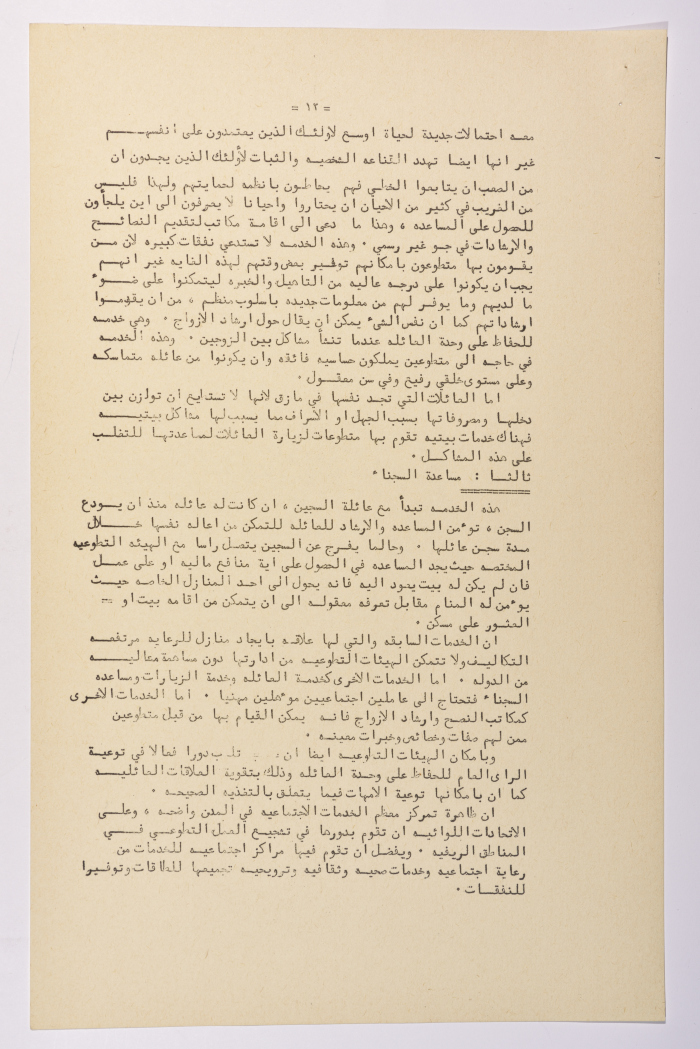 = ١٢ =
معه احتمالات جديدة لحياة اوسع لاولئك الذين يعتمدون على انفسهم
غير انها ايضا تهدد القناعه الشخصيه والثبات لأولئك الذين يجدون ان
من الصعب ان يتابعوا الخطى فهم يحاطون بانظمه لحمايتهم ولهذا فليس
من الغريب في كثير من الاحيان ان يحتاروا واحيانا لا يعرفون الى اين يلجأون
للحصول على المساعده ، وهذا ما دعى الى اقامة مكاتب لتقديم النصائح
والارشادات في جو غير رسمي ٠ وهذه الخدمه لا تستدعي نفقات كبيره لان من
يقومون بها متطوعون بامكانهم توفير بعض وقتهم لهذه الغايه غير انهم
يجب ان يكونوا على درجه عاليه من التاهيل والخبره ليتمكنوا على ضوء
ما لديهم وما يوفر لهم من معلومات جديده باسلوب منظم ، من ان يقوموا
ارشاداتهم كما ان نفس الشيء يمكن ان يقال حول ارشاد الازواج ٠ وهي خدمه
للحفاظ على وحدة العائله عندما تنشأ مشاكل بين الزوجين ٠ وهذه الخدمه
في حاجه الى متطوعين يملكون حساسيه فائقه وان يكونوا من عائله متماسكه
وعلى مستوى خلقي رفيع وفي سن معقول ٠
اما العائلات التي تجد نفسها في مازق لانها لا تستطيع أن توازن بين
دخلها ومصروفاتها بسبب الجهل او الاسراف مما يسبب لها مشاكل بيتيه
فهناك خدمات بيتيه تقوم بها متطوعات لزيارة العائلات لمساعدتها للتغلب
على هذه المشاكل ٠
ثالثا : مساعدة السجناء
هذه الخدمه تبدأ مع عائلة السجين ، ان كانت له عائله منذ ان يودع
السجن ، توءمن المساعده والارشاد للعائله للتمكن من اعاله نفسها خلال
مدة سجن عائلها ٠ وحالما يفرج عن السجين يتصل راسا مع الهيئه التطوعيه
المختصه حيث يجد المساعده في الحصول على أية منافع ماليه او على عمل
فان لم يكن له بيت يعود اليه فانه يحول الى احد المنازل الخاصه حيث
يوءمن له المنام مقابل تعرفه معقوله الى ان يتمكن من اقامه بيت او =
العثور على مسكن ٠
ان الخدمات السابقه والتي لها علاقه بايجاد منازل للرعايه مرتفعه
التكاليف ولا تتمكن الهيئات التطوعيه من ادارتها دون مساهمة ماليه
من الدوله ٠ اما الخدمات الاخرى كخدمة العائله وخدمة الزيارات ومساعده
السجناء فتحتاج الى عاملين اجتماعيين موءهلين مهنيا ٠ أما الخدمات الاخرى
كمكاتب النصح وارشاد الازواج فانه يمكن القيام بها من قبل متطوعين
ممن لهم صفات وخصائص وخبرات معينه ٠
وبامكان الهيئات التطوعيه ايضا ان تلعب دورا فعالا في توعية
الراى العام للحفاظ على وحدة العائله وذلك بتقوية العلاقات العائليه
كما ان بامكانها توعية الامهات فيما يتعلق بالتغذيه الصحيحه ٠
ان ظاهرة تمركز معظم الخدمات الاجتماعيه في المدن واضحه ، وعلى
الاتحادات اللوائيه ان تقوم بدورها في تشجيع العمل التطوعي في
المناطق الريفيه ٠ ويفضل ان تقوم فيها مراكز اجتماعيه للخدمات من
رعاية اجتماعيه وخدمات صحيه وثقافيه وترويحيه تجميعها للطاقات وتوفيرا
للنفقات ٠